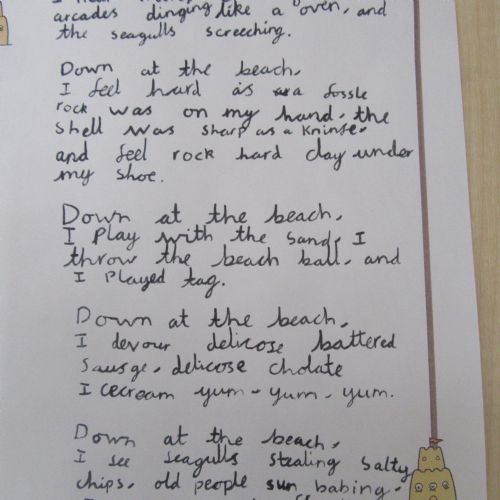 arcades dinging like a oven, and
the seagulls screeching.
Down at the beach,
I feel hard as a fossle
rock was on my hand, the
shell was sharp as a kninfe,
and feel rock hard clay under
my shoe.
Down at the beach,
I play with the sand, I
throw the beach ball, and
I played tag.
Down at the beach,
I devour delicose battered
sausge, delicose cholate
I cecream yum - yum - yum.
Down at the beach,
I see seagulls stealing salty
chips, old people sun babing,